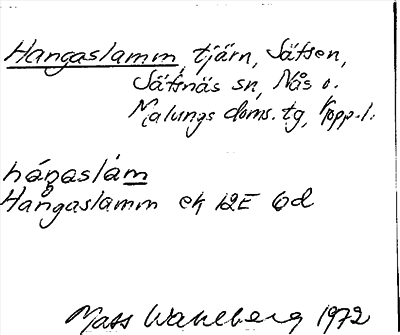 Hangaslamm, tjärn, Säfsen,
Säfsnäs sn, Nås o.
Malungs doms. tg, Kopp. l.
hángaslàm
Hangaslamm ek 12E 6d
Mats Wahlberg 1972